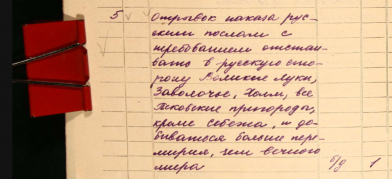 5 Отрывок наказа рус-
ским послам с
требованием отстаи-
вать в русскую сто-
рону Великие Луки,
Заволочье, Холм, все
Псковские пригороды,
кроме Себежа, и до-
биваться больше пере-
мирия, чем вечного
мира б/д 1